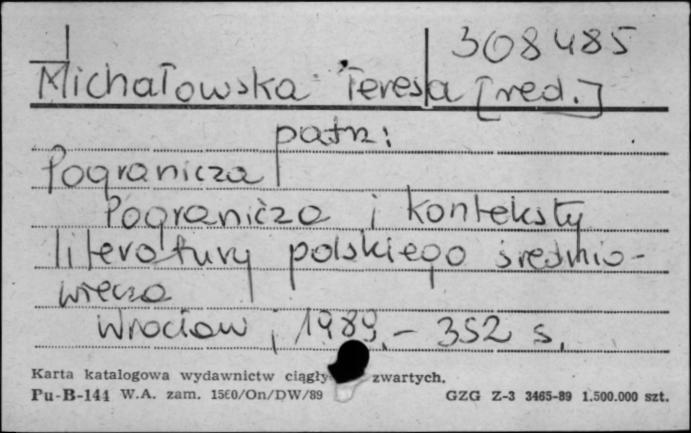 308485
Michałowska Teresa [red.]
patrz:
Pogranicza
Pogranicza i konteksty
literatury polskiego średnio-
wiecza
Wrocław, 1989. - 352 s.
Karta katalogowa wydawnictw ciągły zwartych.
Pu-B-144 W.A. zam. 1560/On/DW/89 GZG Z-3 3465-89 1.500.000 szt.